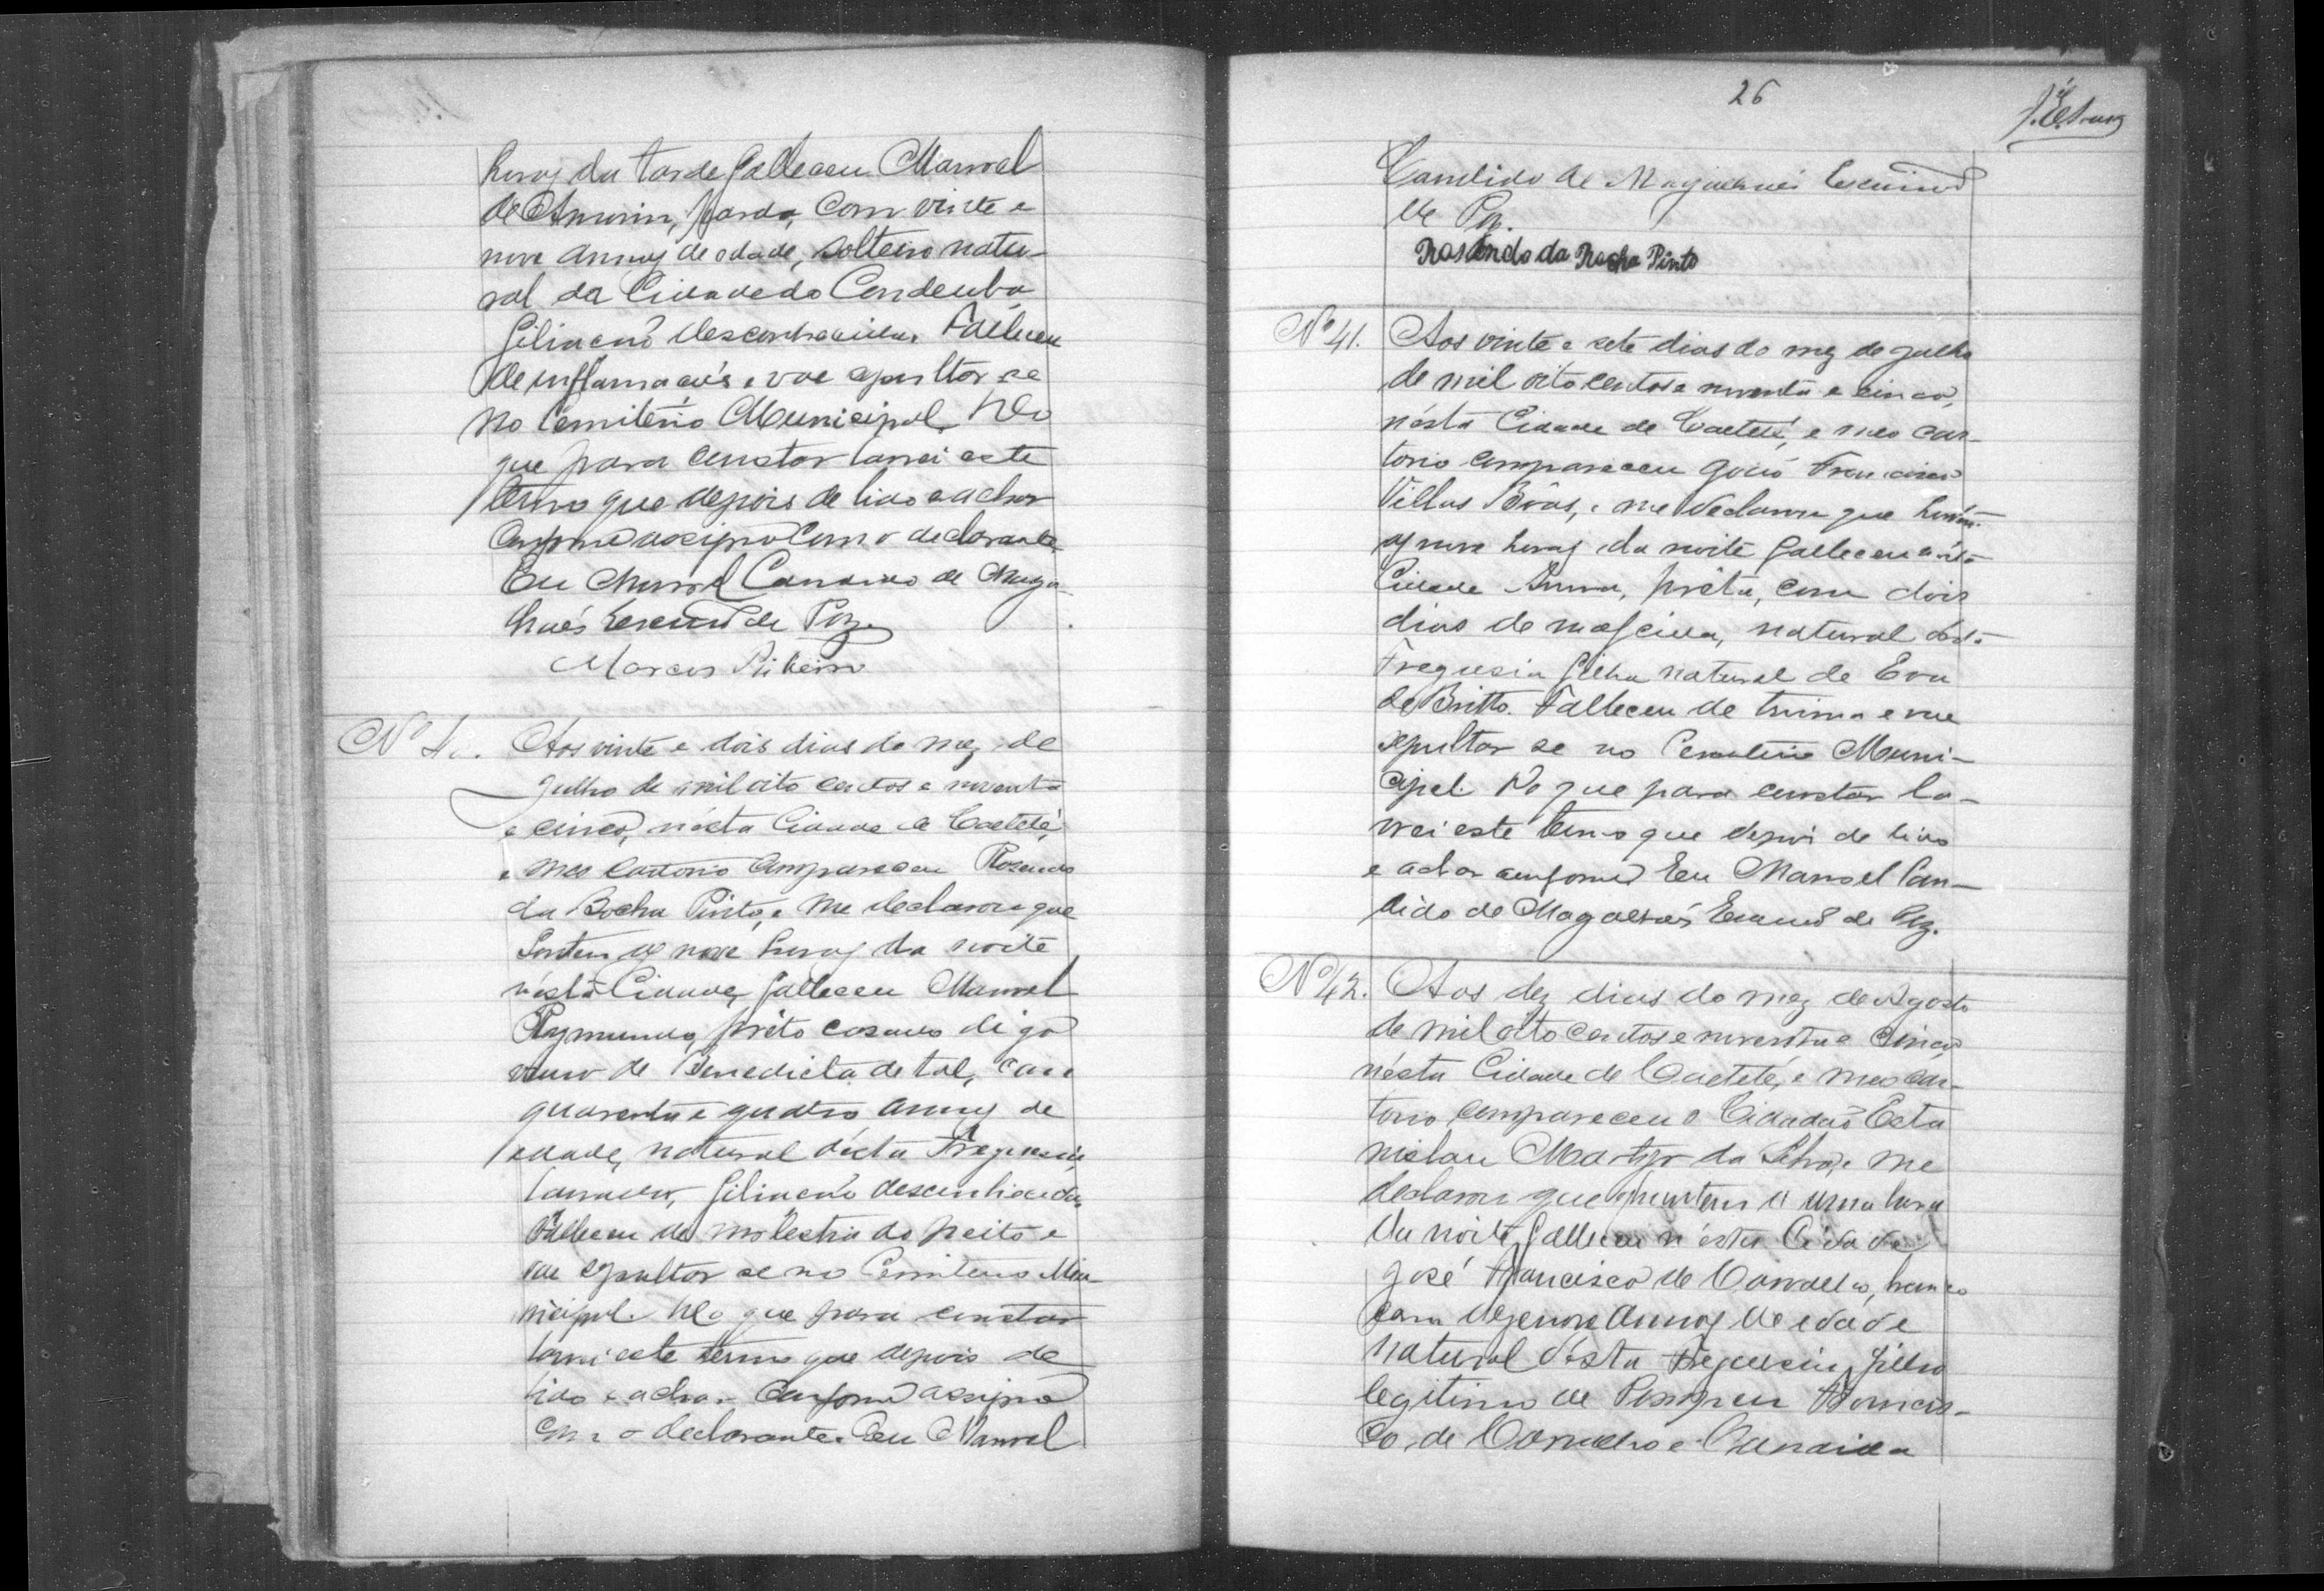 horas da tarde falleceu Manoel
de Amorim, pardo, com vinte e
nove annos de edade, solteiro natu-
ral da Cidade do Condeuba
filiacaõ desconhecida. Falleceu
de inflamacaõ e vae sepultar se
no Cemiterio Municipal. Do
que para constar lavrei este
termo que depois de lido e achar
conforme assigno com o declarante.
Eu Manoel Candido de Maga-
lhaẽs Escrivaõ de Paz.
Marcos Ribeiro
Nº 40. Aos vinte e dois dias do mez de
Julho de mil oito centos e noventa
e cinco, nésta Cidade de Caeteté,
e meo Cartorio compareceu Rosendo
da Rocha Pinto, e me declarou que
hontem as nove horas da noite
nésta Cidade, falleceu Manoel
Raymundo, prêto casado digo
viuvo de Benedicta de tal, com
quarenta e quatro annos de
edade, natural désta Freguesia,
lavrador, filiacaõ desconhecida.
Falleceu de molestia do peito e
vae sepultar se no Cemiterio Mu-
nicipal. Do que para constar
lavrei este termo que depois de
lido e achar conforme assigno
com o declarante. Eu Manoel
26
Candido de Magalhaẽs Escrivaõ
de Paz.
Rosendo da Rocha Pinto
Nº 41. Aos vinte e sete dias do mez de Julho
de mil oito centos e noventa e cinco,
nésta Cidade de Caeteté, e meo car-
torio compareceu Joaõ Francisco
Villas Bôas, e me declarou que hontem
as nove horas da noite falleceu nésta
Cidade Anna, prêta, com dois
dias de nascida, natural désta
Freguesia filha natural de Eva
de Britto. Falleceu de e vae
sepultar se no Cemiterio Muni-
cipal. Do que para constar la-
vrei este termo que depois de lido
e achar conforme Eu Manoel Can-
dido de Magalhaẽs Escrivaõ de Paz.
Nº 42. Aos dez dias do mez de Agosto
de mil oito centos e noventa e cinco,
nésta Cidade de Caeteté, e meo car-
torio, compareceu o Cidadaõ Esta
nislau Martyr da Silva, e me
declarou que hontem a uma hora
da noite falleceu n'ésta Cidade
José Francisco de Carvalho, branco
com dezenove annos de edade
natural désta Freguesia, filho
legitimo de Francis-
co de Carvalho e Candida